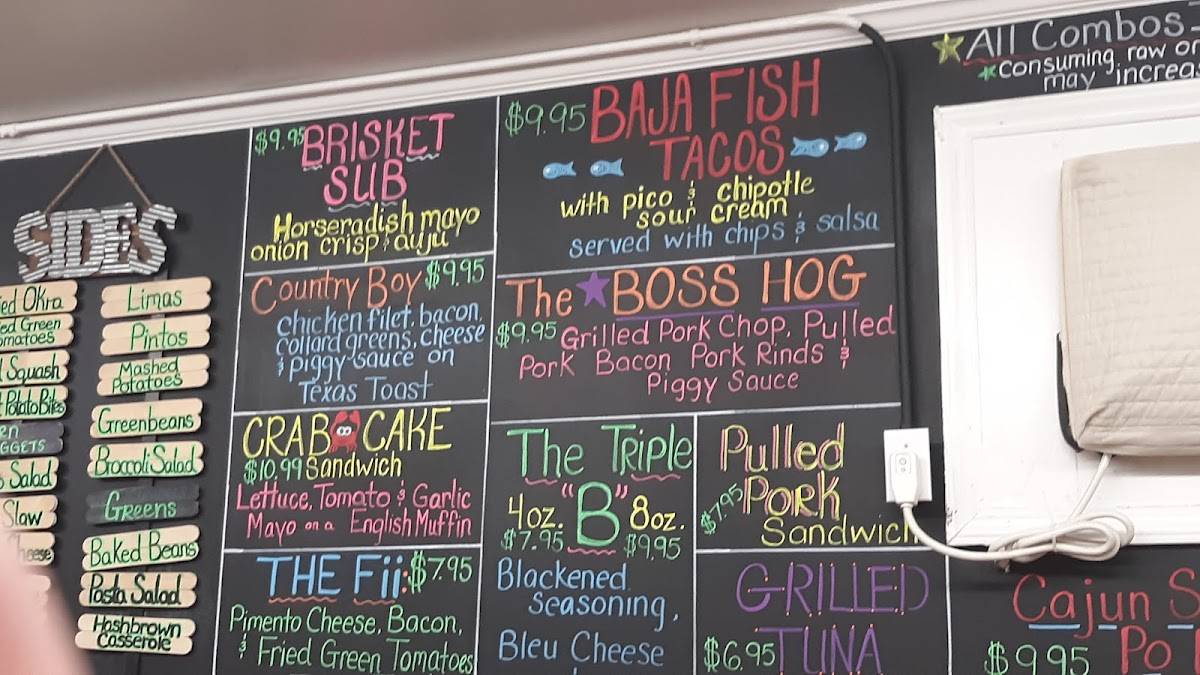 SIDES
Okra
Green
Squash
Potato Bites
GGETS
Salad
Slaw
Limas
Pintos
Mashed
Potatoes
Greenbeans
Broccoli Salad
Greens
Baked Beans
Pasta Salad
Hashbrown
Casserole
$9.95 BRISKET
SUB
Horseradish mayo
onion crisp & auju
Country Boy $9.95
chicken filet, bacon,
collard greens, cheese
& piggy sauce on
Texas Toast
CRAB CAKE
$10.99 Sandwich
Lettuce, Tomato & Garlic
Mayo on a English Muffin
THE Fii: $7.95
Pimento Cheese, Bacon,
& Fried Green Tomatoes
$9.95 BAJA FISH
TACOS
with pico & chipotle
sour cream
served with chips & salsa
The BOSS HOG
$9.95 Grilled Pork Chop, Pulled
Pork Bacon Pork Rinds &
Piggy Sauce
The TRIPLE
4oz. "B" 8oz.
$7.95 $9.95
Blackened
Seasoning,
Bleu Cheese
Pulled
$7.95 PORK
Sandwich
GRILLED
$6.95 TUNA
All Combos
consuming raw or
may increas
Cajun S
$9.95 Po